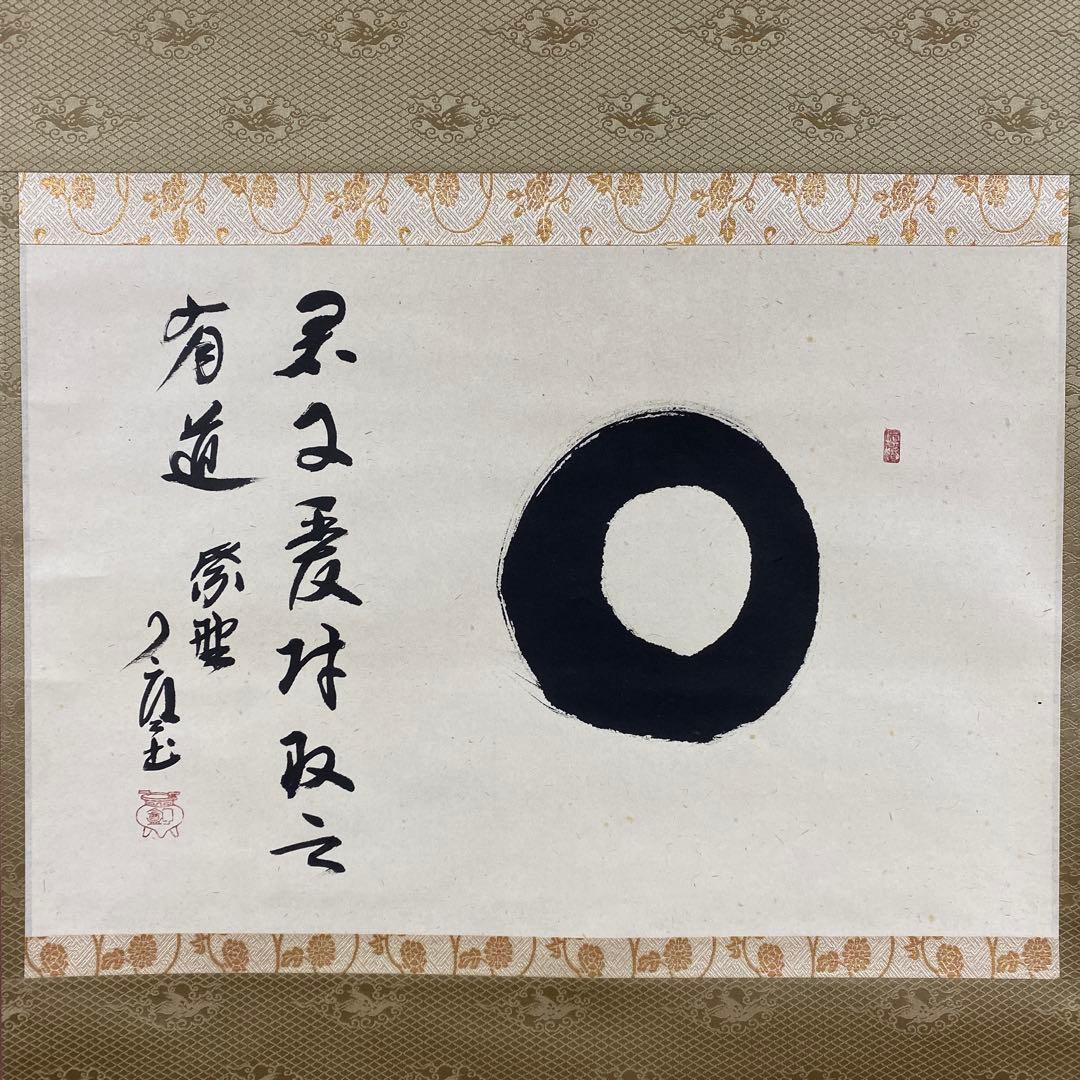 君子愛財取之
有道
紫野